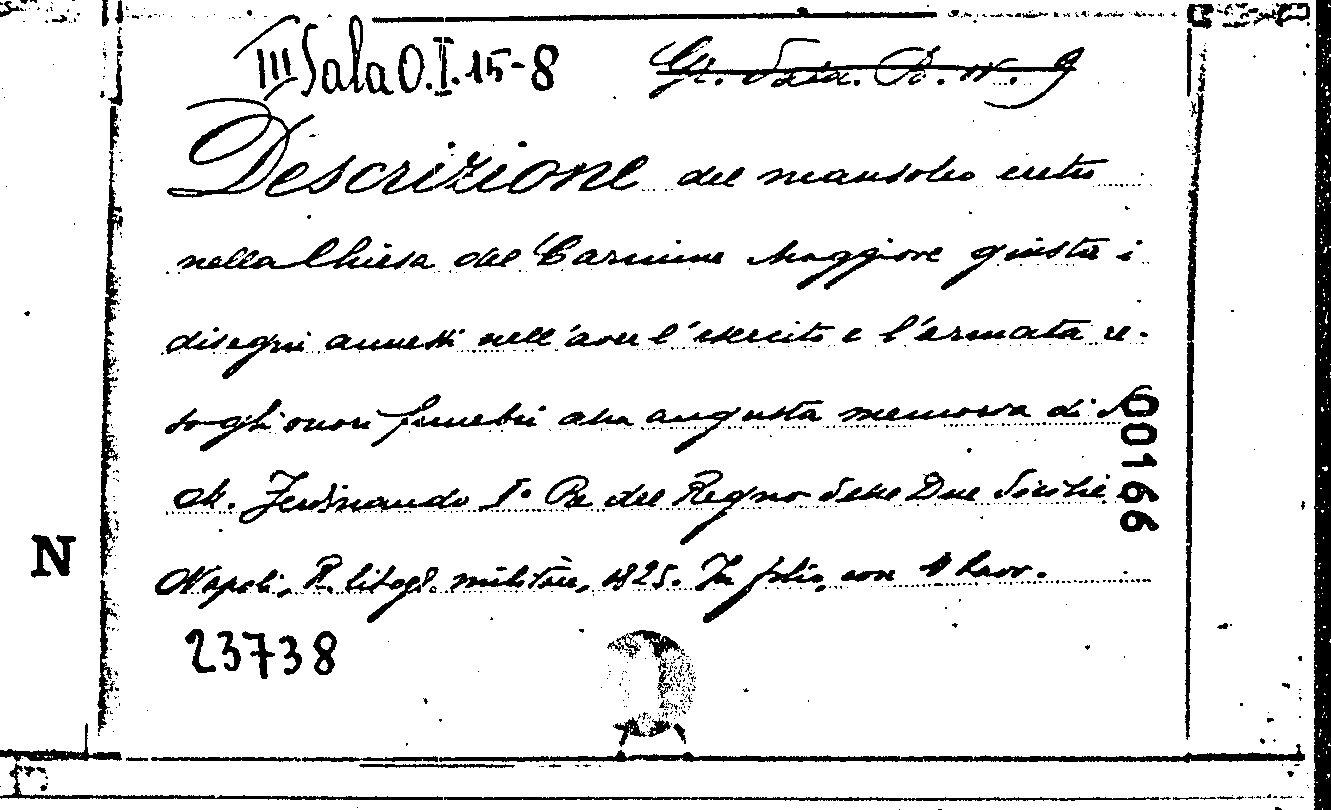 III Sala O.I.15-8 Gr. Sala. B. IV. 9
Descrizione del mausoleo eretto
nella Chiesa del Carmine Maggiore giusta i
disegni annessi nell'aver l'esercito e l'armata re-
so gli onori funebri alla augusta memoria di S.
M. Ferdinando I° Re del Regno delle Due Sicilie
Napoli, R. litogr. militare, 1825. In folio, con 4 tavv.
23738
00166
N